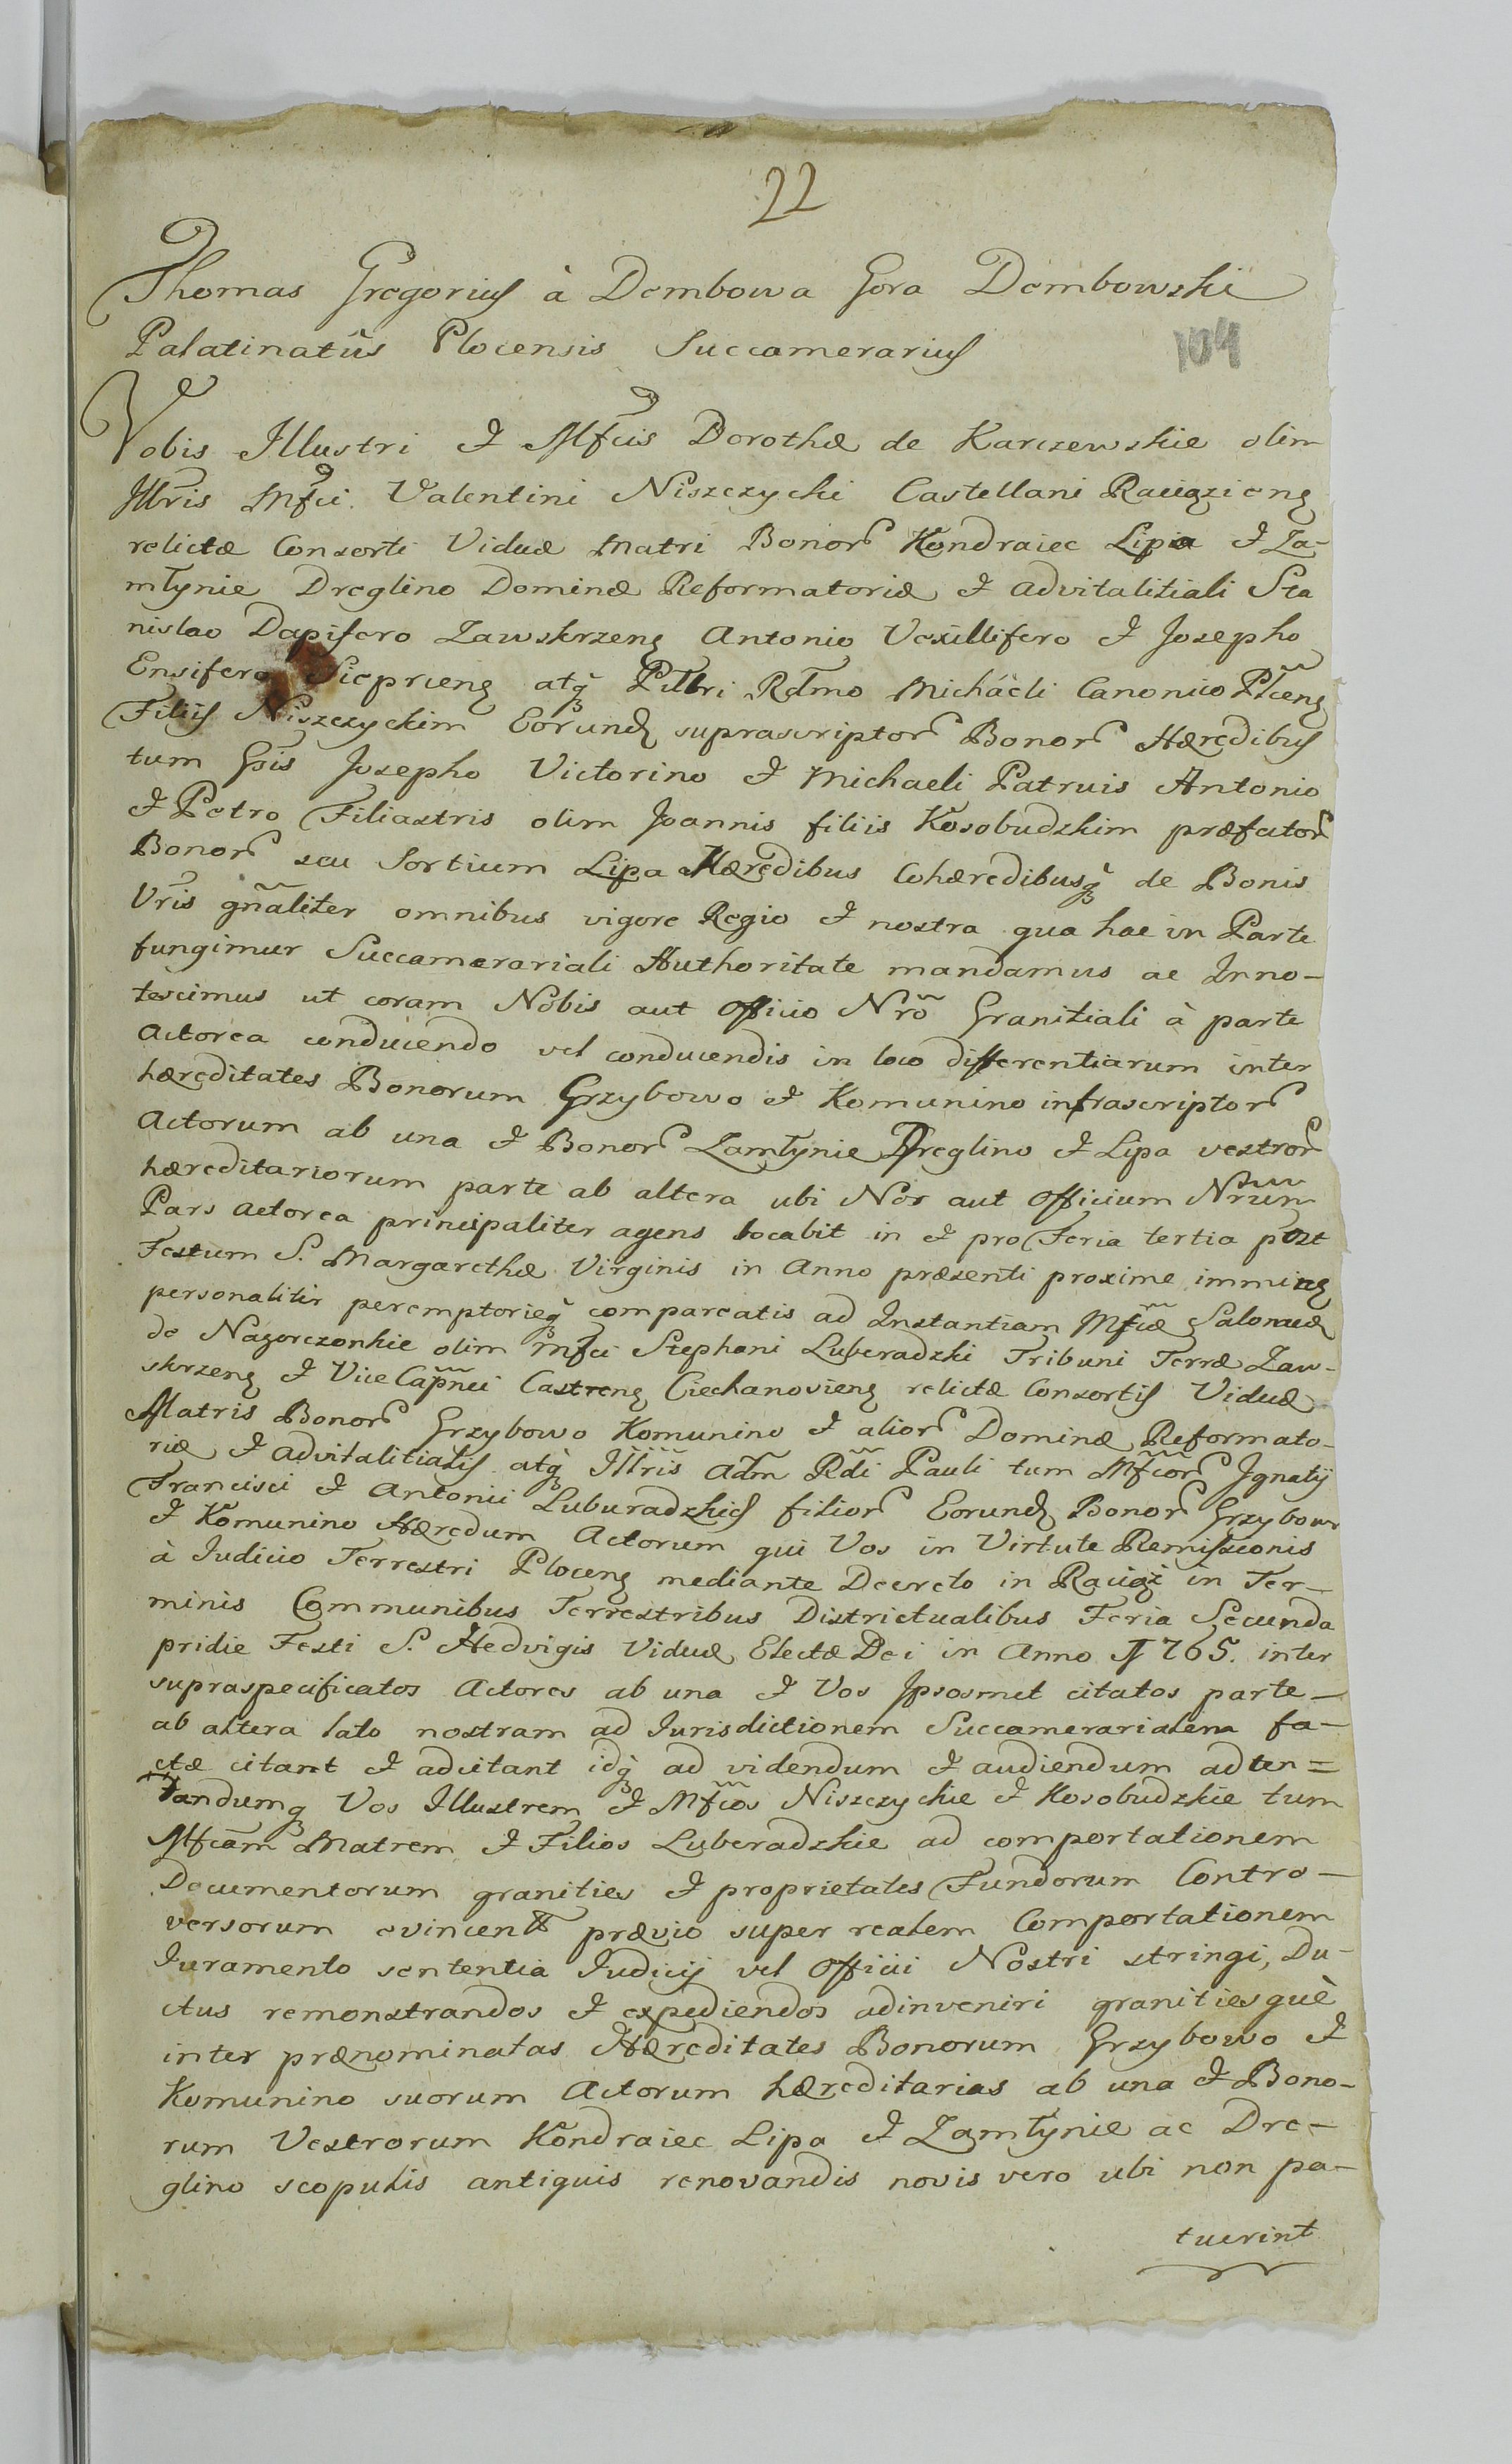 22
Thomas Gregorius à Dembowa Gora Dembowski
Palatinatûs Plocensis Succamerarius
104
Vobis Illustri & Mfcis Dorothæ de Karczewskie olim
Illris Mfci Valentini Niszczycki Castellani Raciązieng
relictæ Consorti Viduæ Matri Bonor Kondraiec Lipa & Za-
młynie Dreglino Dominæ Reformatoriæ & advitalitiali Sta
nislao Dapifero Zawskrzeng Antonio Vexillifero & Josepho
Ensifero Sieprceng atq Illri Rdmo Michaeli Canonico Plceng
Filiis Niszczyckim Eorund suprascriptor Bonor Hæredibus
tum Gsis Josepho Victorino & Michaeli Patruis Antonio
& Petro Filiastris olim Joannis filiis Kosobudzkim præfator
Bonor seu Sortium Lipa Hæredibus Cohæredibusq de Bonis
Vris gñaliter omnibus vigore Regio & nostra qua hac in Parte
fungimur Succamerariali Authoritate mandamus ac Inno-
tescimus ut coram Nobis aut Officio Nrõ Granitiali à parte
Actorea conducendo vel conducendis in loco differentiarum inter
hæreditates Bonorum Grzybowo & Komunino infrascriptor
Actorum ab una & Bonor Zamłynie Dreglino & Lipa vestror
hæreditariorum parte ab altera ubi Nos aut Officium Nrum
Pars Actorea principaliter agens locabit in & pro Feria tertia post
Festum S. Margarethæ Virginis in Anno præsenti proxime immineng
personaliter peremptorieq compareatis ad Instantiam Mfcæ Salomeæ
de Nagorczonkie olim Mfci Stephani Luberadzki Tribuni Terræ Zaw-
skrzeng & Vice Capnei Castreng Ciechanovieng relictæ Consortis Viduæ
Matris Bonor Grzybowo Komunino & alior Dominæ Reformato-
riæ & advitalitialis atq Illris Adm Rdi Pauli tum Mfcor Ignatij
Francisci & Antonii Luburadzkich filior Eorund Bonor Grzybowo
& Komunino Hæredum Actorum qui Vos in Virtute Remissionis
à Iudicio Terrestri Ploceng mediante Decreto in Raciąż in Ter-
minis Communibus Terrestribus Districtualibus Feria Secunda
pridie Festi S. Hedvigis Viduæ Electæ Dei in Anno 1765. inter
supraspecificatos Actores ab una & Vos Ipsosmet citatos parte-
ab altera lato nostram ad Iurisdictionem Succamerarialem fa-
ctæ citant & adcitant idq ad videndum & audiendum adten=
tandumq Vos Illustrem & Mfcos Niszczyckie & Kosobudzkie tum
Mfcam Matrem & Filios Luberadzkie ad comportationem
Documentorum granities & proprietates Fundorum Contro-
versorum evincent prævio super realem Comportationem
Iuramento sententia Iudicij vel Officii Nostri stringi, Du-
ctus remonstrandos & expediendos adinveniri granitiesquè
inter prænominatas Hæreditates Bonorum Grzybowo &
Komunino suorum Actorum hæreditarias ab una & Bono-
rum Vestrorum Kondraiec Lipa & Zamłynie ac Dre-
glino scopulis antiquis renovandis novis vero ubi non pa-
tuerint